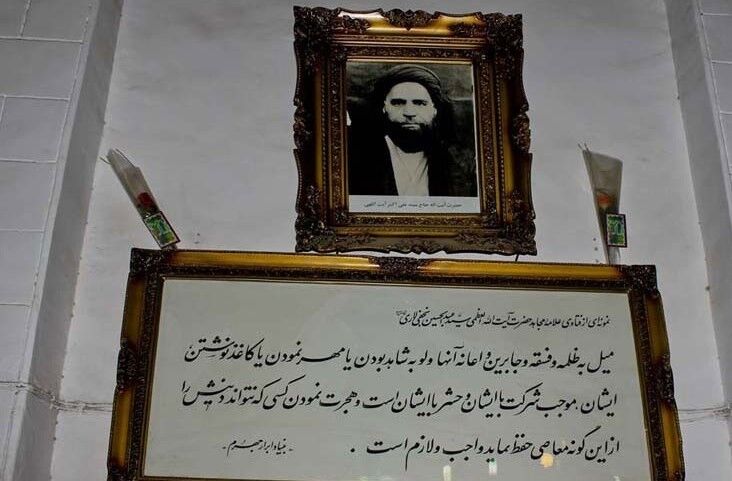 حضرت آیت اله حاج سید علی اکبر آیت اللهی
نمونه‌ای از فتاوی علامه مجاهد حضرت آیت الله العظمی سید عبدالحسین نجفی لاری
میل به ظلمه و فسقه و جابرین و اعانه آنها ولو به شاهد بودن یا مهر نمودن یا کاغذ نوشتن
ایشان، موجب شرکت با ایشان و حشر با ایشان است و هجرت نمودن کسی که نتواند دینش را
از این گونه معاصی حفظ نماید واجب و لازم است.
- بنیاد ابرار جهرم -